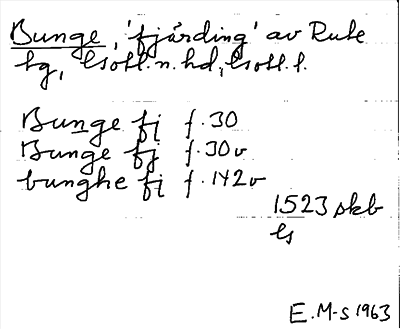 Bunge, 'fjärding' av Rute
tg, Gotl. n. hd, Gotl. l.
Bunge fj f. 30
Bunge fj f. 30v
bunghe fj f. 142v
1523 skb
ls
E. M-s 1963